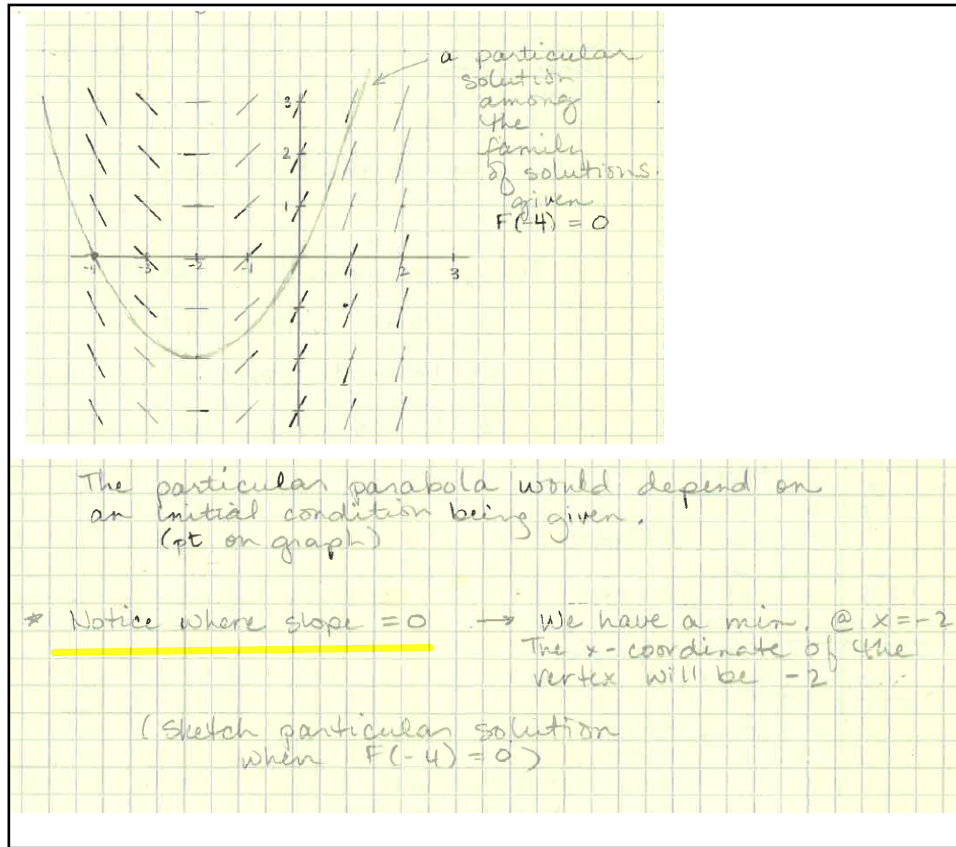 a particular
solution
among
the
family
of solutions.
given
F(-4) = 0
3
2
1
-4 -3 -2 -1 1 2 3
The particular parabola would depend on
an initial condition being given.
(pt on graph)
* Notice where slope = 0 → We have a min. @ x=-2
The x-coordinate of the
vertex will be -2
(sketch particular solution
when F(-4) = 0)